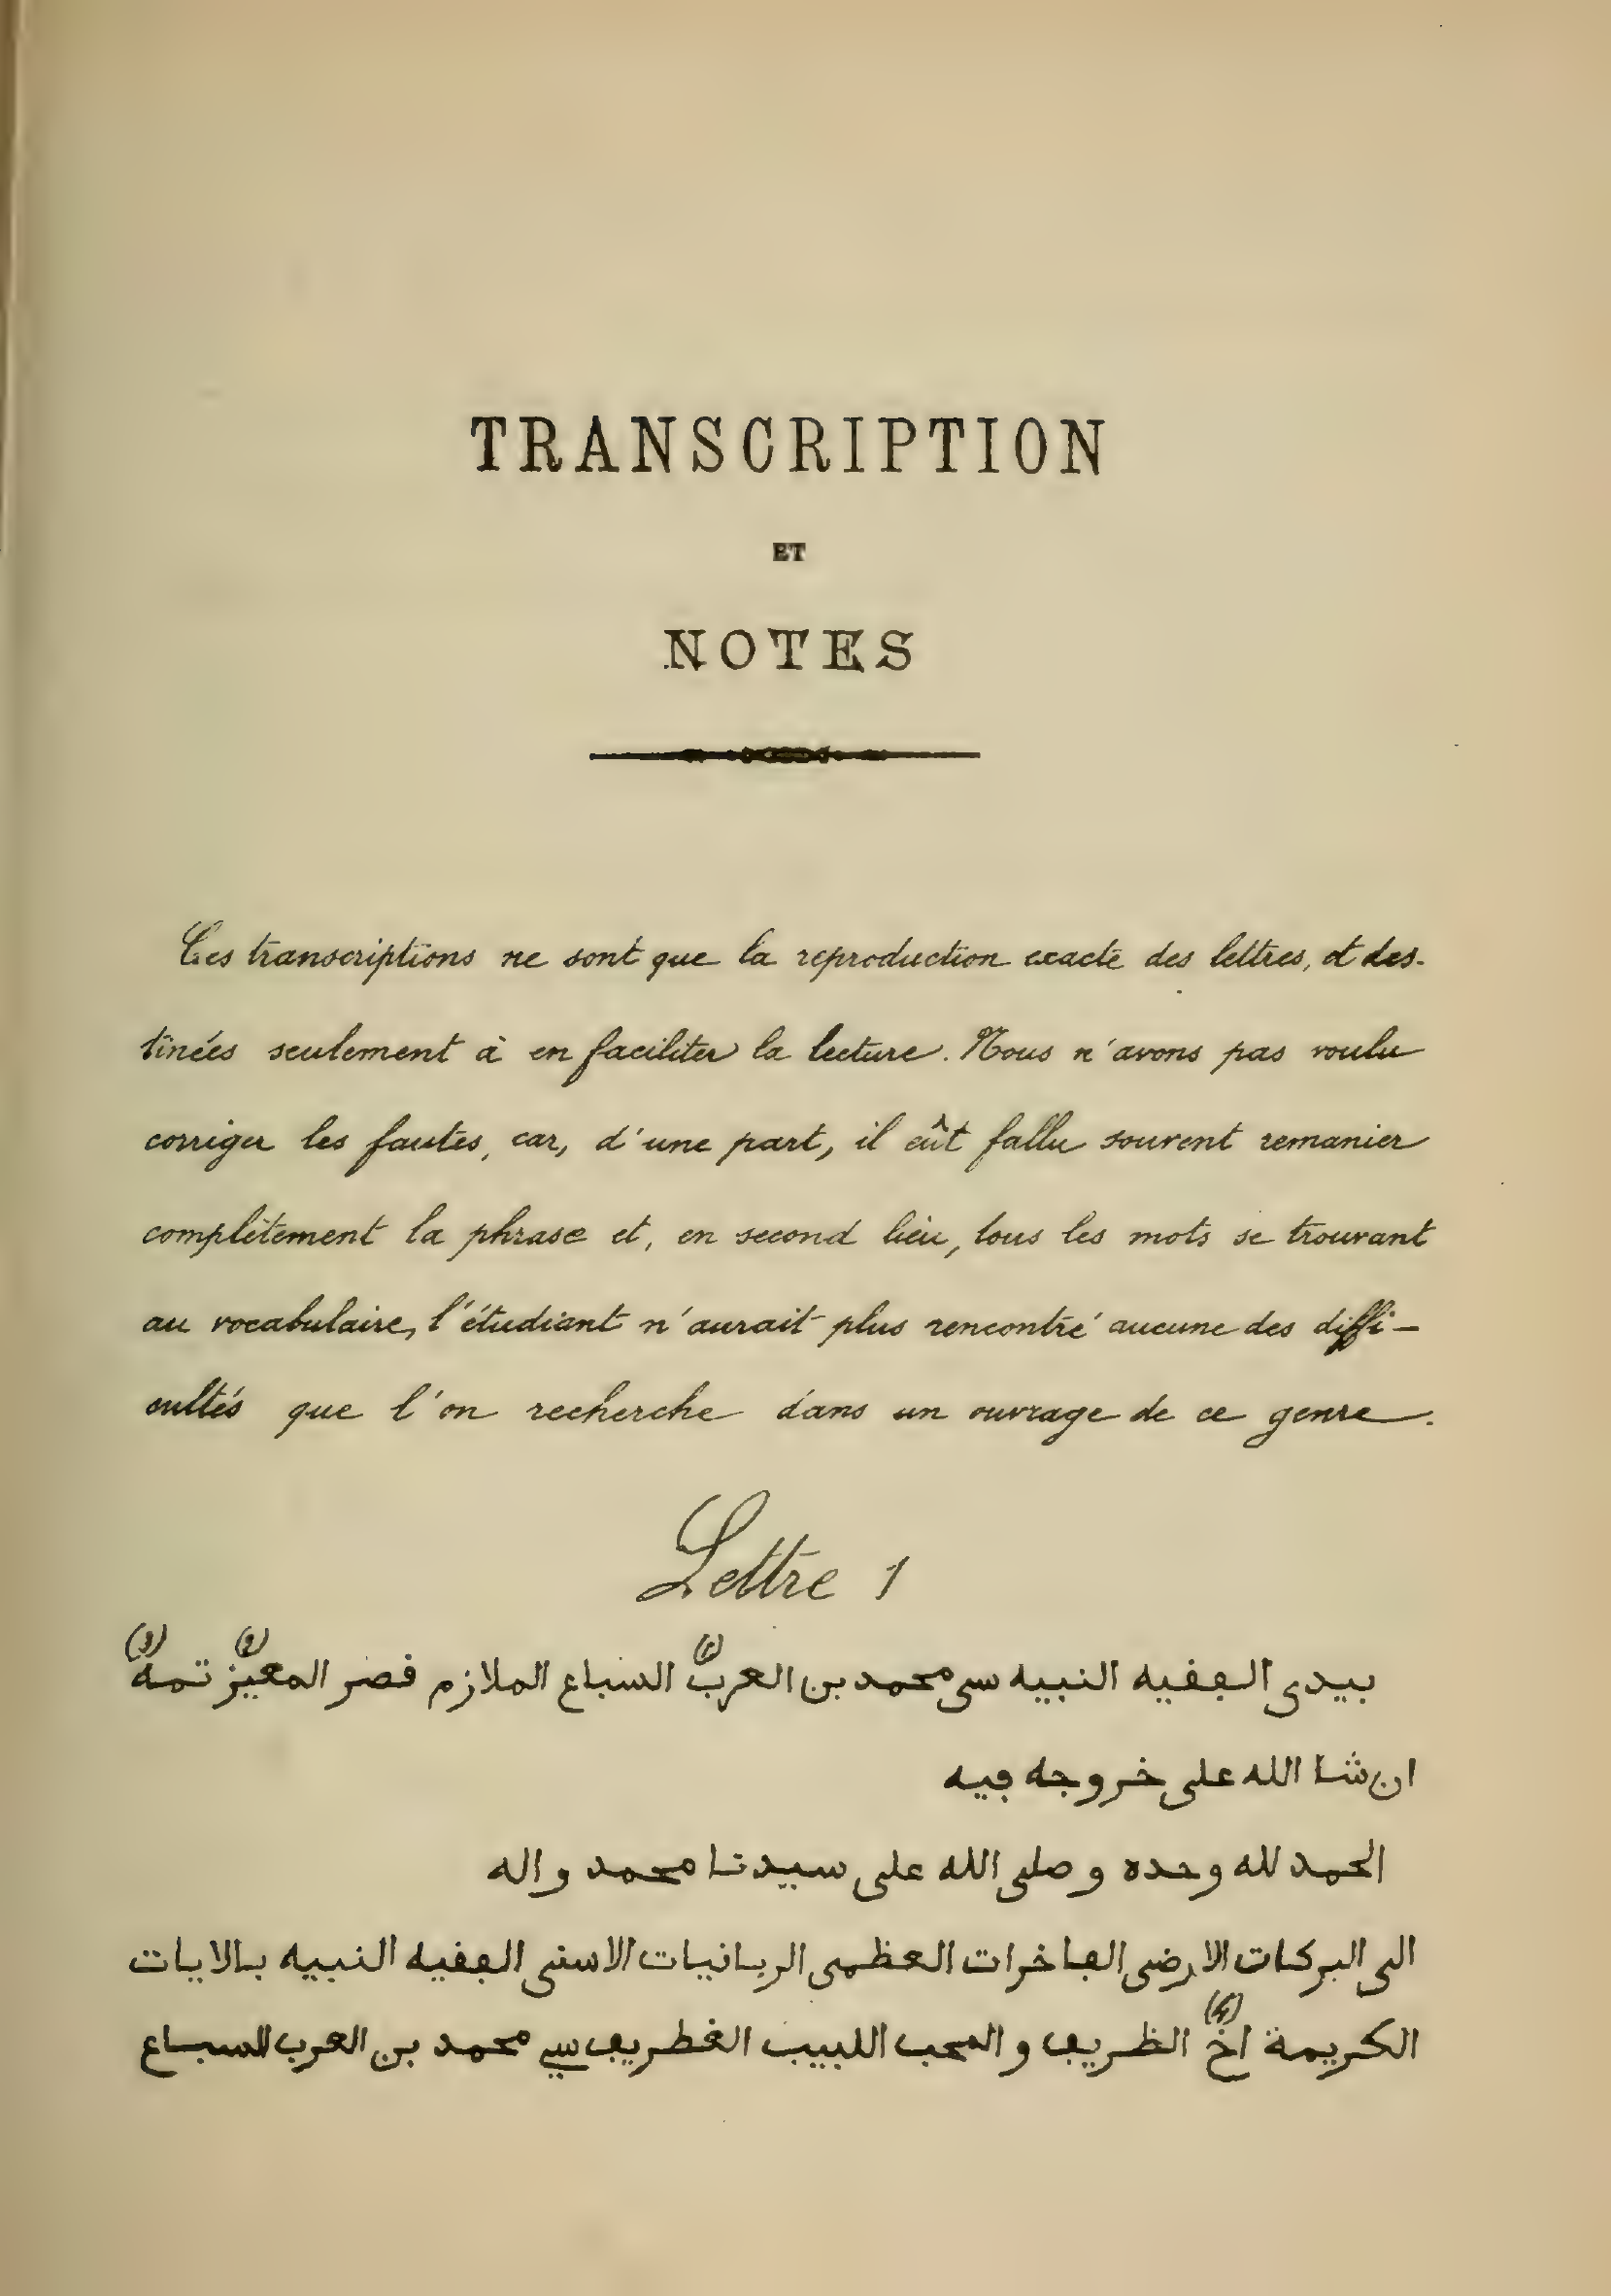 TRANSCRIPTION
ET
NOTES
Ces transcriptions ne sont que la reproduction exacte des lettres, et des-
tinées seulement à en faciliter la lecture. Nous n'avons pas voulu
corriger les fautes, car, d'une part, il eût fallu souvent remanier
complètement la phrase et, en second lieu, tous les mots se trouvant
au vocabulaire, l'étudiant n'aurait plus rencontré aucune des diffi-
cultés que l'on recherche dans un ouvrage de ce genre.
Lettre 1
بيدى الڢڧيه النبيه سى محمد بن العرب (1) السباع الملازم ڧصر المعيز (2) تمه (3)
ان شا الله على خروجه ڢيه
الحمد لله وحده وصلى الله على سيدنا محمد واله
الى البركات الارضى الڢاخرات العظمى الربانيات الاسنى الڢڧيه النبيه بالايات
الكريمة اخ (4) الظريڢ و المحب اللبيب الغطريڢ سي محمد بن العرب السباع